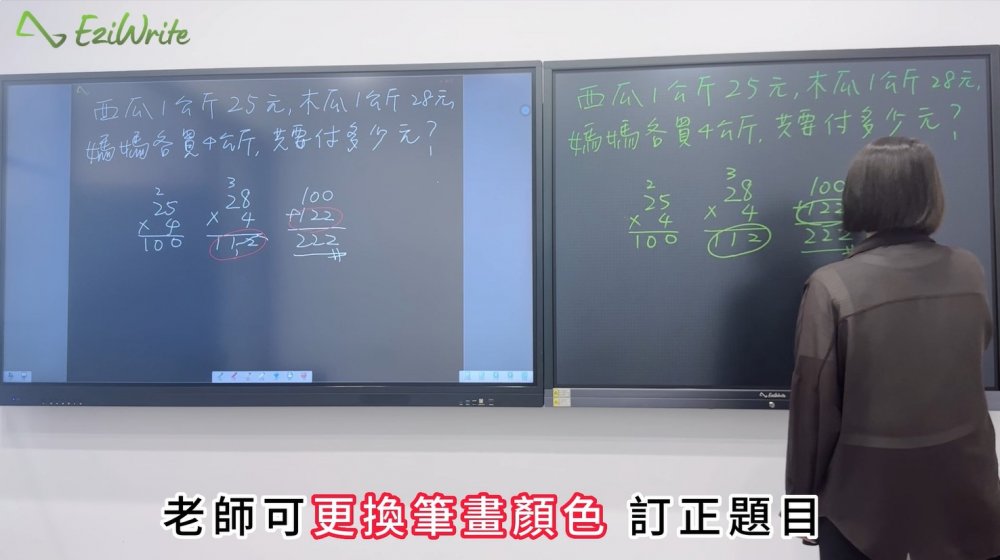 EziWrite
西瓜1公斤25元,木瓜1公斤28元,
媽媽各買4公斤,共要付多少元?
2
25
× 4
100
3
28
× 4
112
100
+122
222
西瓜1公斤25元,木瓜1公斤28元,
媽媽各買4公斤,共要付多少元?
2
25
× 4
100
3
28
× 4
112
100
+122
222
EziWrite
老師可更換筆畫顏色 訂正題目